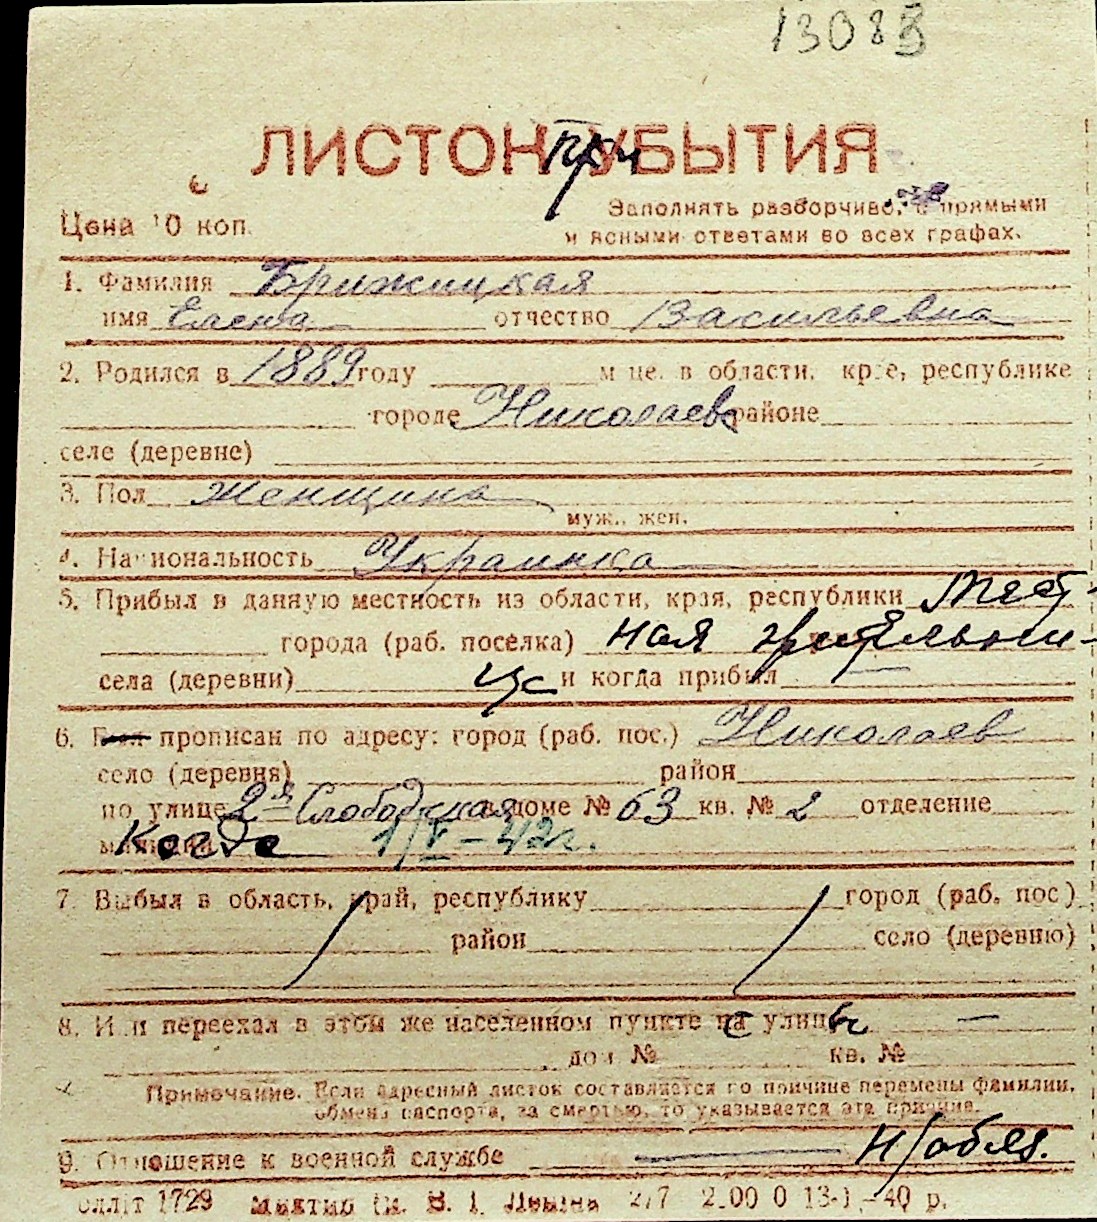 13083
ЛИСТОК УБЫТИЯ
При
Цена 10 коп. Заполнять разборчиво, с прямыми
и ясными ответами во всех графах.
1. Фамилия Брижицкая
имя Елена отчество Васильевна
2. Родился в 1889 году м-це, в области, крае, республике
городе Николаев районе
селе (деревне)
3. Пол Женщина
муж., жен.
4. Национальность Украинка
5. Прибыл в данную местность из области, края, республики Мест-
города (раб. поселка) ная жительни-
села (деревни) ца и когда прибыл
6. Был прописан по адресу: город (раб. пос.) Николаев
село (деревня) район
по улице 2я Слободская доме № 63 кв. № 2 отделение
милиции Когда 1/V-42г.
7. Выбыл в область, край, республику город (раб. пос)
район село (деревню)
8. Или переехал в этом же населенном пункте с улицы —
дом № кв. №
Примечание. Если адресный листок составляется по причине перемены фамилии,
обмена паспорта, за смертью, то указывается эта причина.
9. Отношение к военной службе — н/обяз.
1729 2/7 2.00 0 13-1-40 р.